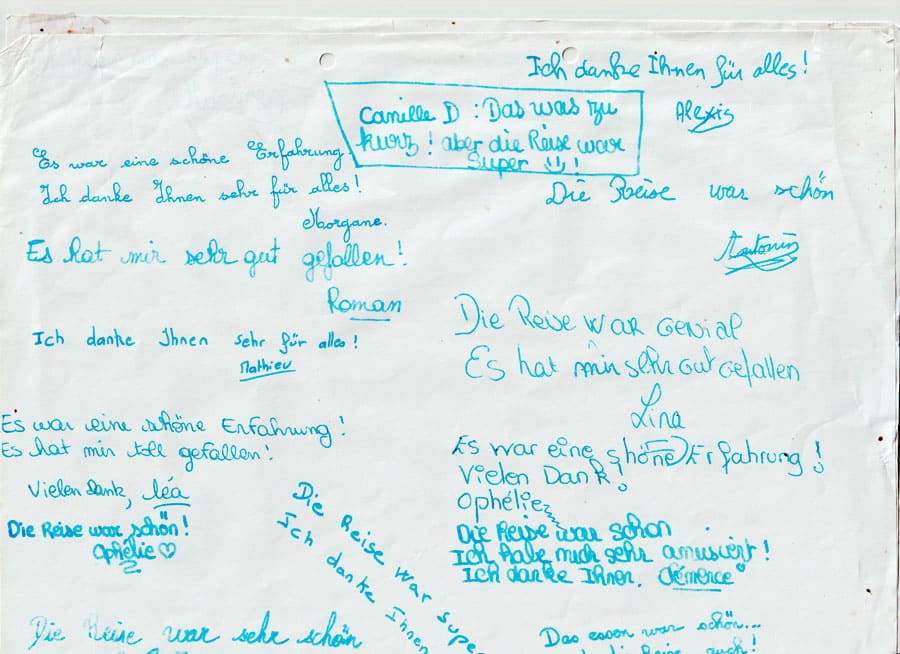 Ich danke Ihnen für alles!
Alexis
Camille D : Das was zu
kurz! aber die Reise war
Super !
Es war eine schöne Erfahrung.
Ich danke Ihnen sehr für alles!
Morgane.
Die Reise war schön
Antonin
Es hat mir sehr gut gefallen!
Roman
Ich danke Ihnen sehr für alles!
Mathieu
Die Reise war Genial
Es hat mir sehr Gut Gefallen
Lina
Es war eine schöne Erfahrung!
Es hat mir toll gefallen!
Vielen Dank, léa
Die Reise war schön!
Ophélie
Es war eine shöne Erfahrung!
Vielen Dank!
Ophélie
Die Reise war schon
Ich habe mich sehr amusiert!
Ich danke Ihnen. Clémence
Die Reise war supe
Ich danke Ihnen
Die Reise war sehr schön
Das essen war schön...
die Reise auch!